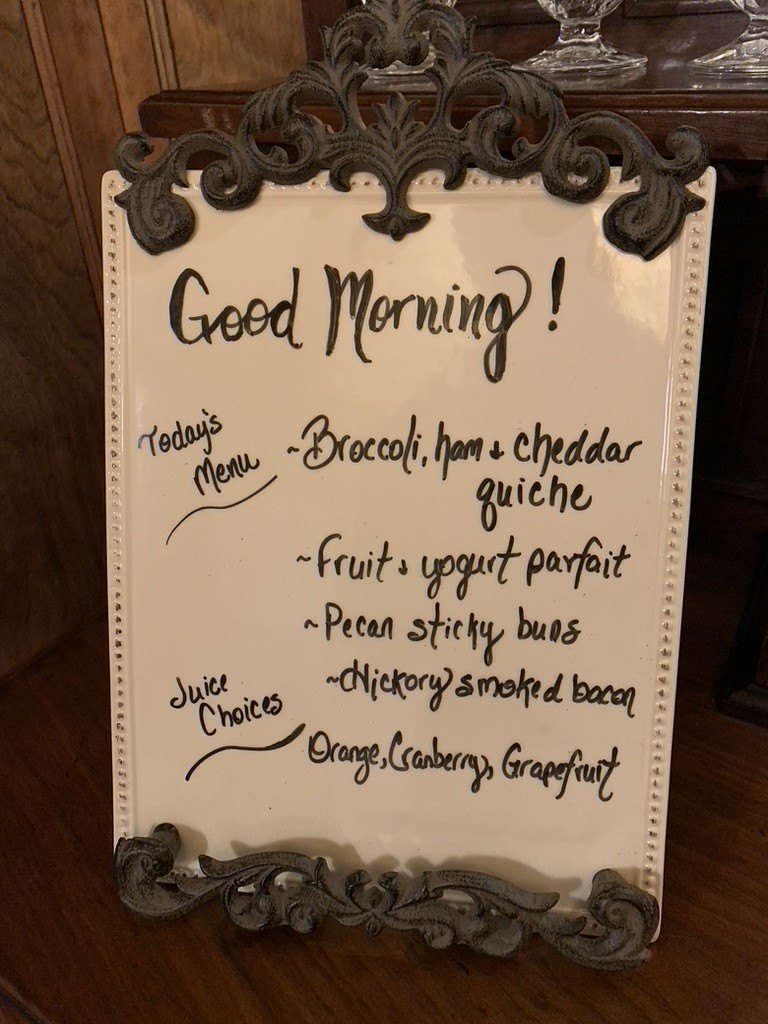 Good Morning!
Today's
Menu
~Broccoli, ham + cheddar
quiche
~Fruit + yogurt parfait
~Pecan sticky buns
~Hickory smoked bacon
Juice
Choices
Orange, Cranberry, Grapefruit